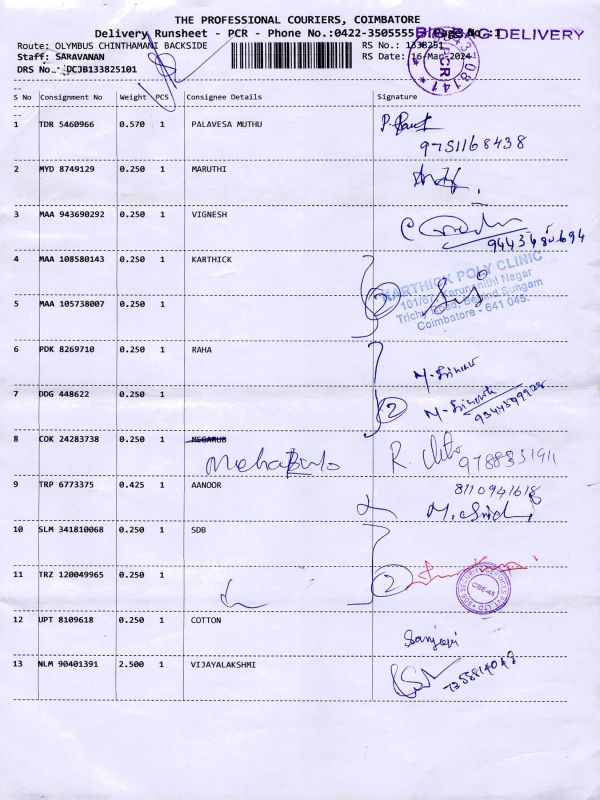 THE PROFESSIONAL COURIERS, COIMBATORE
Delivery Runsheet - PCR - Phone No.:0422-3505555
DELIVERY
Route: OLYMBUS CHINTHAMANI BACKSIDE
RS No.: 1338251
Staff: SARAVANAN
RS Date: 16-Mar-2024
DRS No.: DCJB133825101
PCR
S No Consignment No Weight PCS Consignee Details Signature
1 TDR 5460966 0.570 1 PALAVESA MUTHU
9751168438
2 MYD 8749129 0.250 1 MARUTHI
3 MAA 943690292 0.250 1 VIGNESH
4 MAA 108580143 0.250 1 KARTHICK
KARTHICK POLY CLINIC
5 MAA 105738007 0.250 1
2
Coimbatore - 641 045.
6 PDK 8269710 0.250 1 RAHA
7 DDG 448622 0.250 1
2
8 COK 24283738 0.250 1 MEGARUB
9 TRP 6773375 0.425 1 AANOOR
10 SLM 341810068 0.250 1 SDB
11 TRZ 120049965 0.250 1
2
CBE-45
12 UPT 8109618 0.250 1 COTTON
13 NLM 90401391 2.500 1 VIJAYALAKSHMI